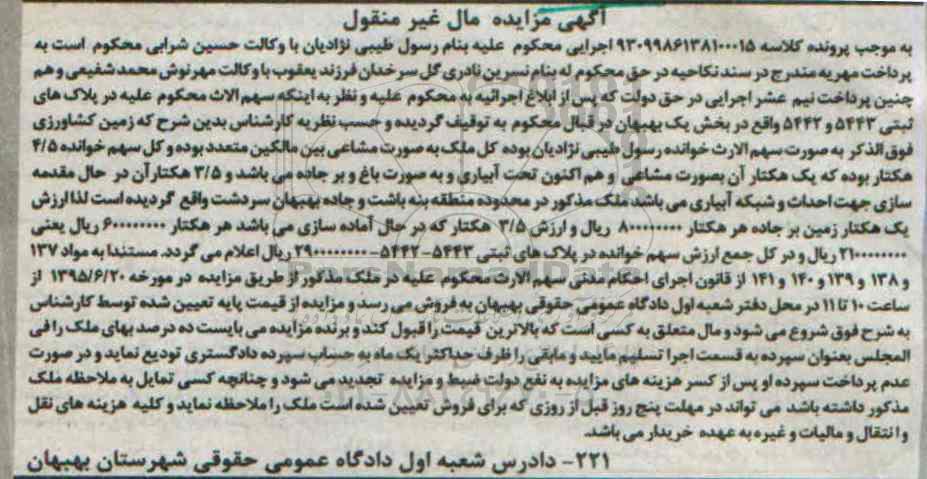 آگهی مزایده مال غیر منقول
به موجب پرونده کلاسه ۹۳۰۹۹۸۶۱۳۸۱۰۰۰۱۵ اجرایی محکوم علیه بنام رسول طیبی نژادیان با وکالت حسین شرابی محکوم است به
پرداخت مهریه مندرج در سند نکاحیه در حق محکوم له بنام نسرین نادری گل سرخدان فرزند یعقوب با وکالت مهرنوش محمد شفیعی و هم
چنین پرداخت نیم عشر اجرایی در حق دولت که پس از ابلاغ اجرائیه به محکوم علیه و نظر به اینکه سهم الاث محکوم علیه در پلاک های
ثبتی ۵۴۴۳ و ۵۴۴۲ واقع در بخش یک بهبهان در قبال محکوم به توقیف گردیده و حسب نظریه کارشناس بدین شرح که زمین کشاورزی
فوق الذکر به صورت سهم الارث خوانده رسول طیبی نژادیان بوده کل ملک به صورت مشاعی بین مالکین متعدد بوده و کل سهم خوانده ۴/۵
هکتار بوده که یک هکتار آن بصورت مشاعی و هم اکنون تحت آبیاری و به صورت باغ و بر جاده می باشد و ۳/۵ هکتار آن در حال مقدمه
سازی جهت احداث و شبکه آبیاری می باشد ملک مذکور در محدوده منطقه بنه باشت و جاده بهبهان سردشت واقع گردیده است لذا ارزش
یک هکتار زمین بر جاده هر هکتار ۸۰۰۰۰۰۰۰۰ ریال و ارزش ۳/۵ هکتار که در حال آماده سازی می باشد هر هکتار ۶۰۰۰۰۰۰۰۰ ریال یعنی
۲۱۰۰۰۰۰۰۰۰ ریال و در کل جمع ارزش سهم خوانده در پلاک های ثبتی ۵۴۴۳-۵۴۴۲-۲۹۰۰۰۰۰۰۰۰ ریال اعلام می گردد. مستندا به مواد ۱۳۷
و ۱۳۸ و ۱۳۹ و ۱۴۰ و ۱۴۱ از قانون اجرای احکام مدنی سهم الارث محکوم علیه در ملک مذکور از طریق مزایده در مورخه ۱۳۹۵/۶/۲۰ از
ساعت ۱۰ تا ۱۱ در محل دفتر شعبه اول دادگاه عمومی حقوقی بهبهان به فروش می رسد و مزایده از قیمت پایه تعیین شده توسط کارشناس
به شرح فوق شروع می شود و مال متعلق به کسی است که بالاترین قیمت را قبول کند و برنده مزایده می بایست ده درصد بهای ملک را فی
المجلس بعنوان سپرده به قسمت اجرا تسلیم مایید و مابقی را ظرف حداکثر یک ماه به حساب سپرده دادگستری تودیع نماید و در صورت
عدم پرداخت سپرده او پس از کسر هزینه های مزایده به نفع دولت ضبط و مزایده تجدید می شود و چنانچه کسی تمایل به ملاحظه ملک
مذکور داشته باشد می تواند در مهلت پنج روز قبل از روزی که برای فروش تعیین شده است ملک را ملاحظه نماید و کلیه هزینه های نقل
و انتقال و مالیات و غیره به عهده خریدار می باشد.
۲۲۱- دادرس شعبه اول دادگاه عمومی حقوقی شهرستان بهبهان